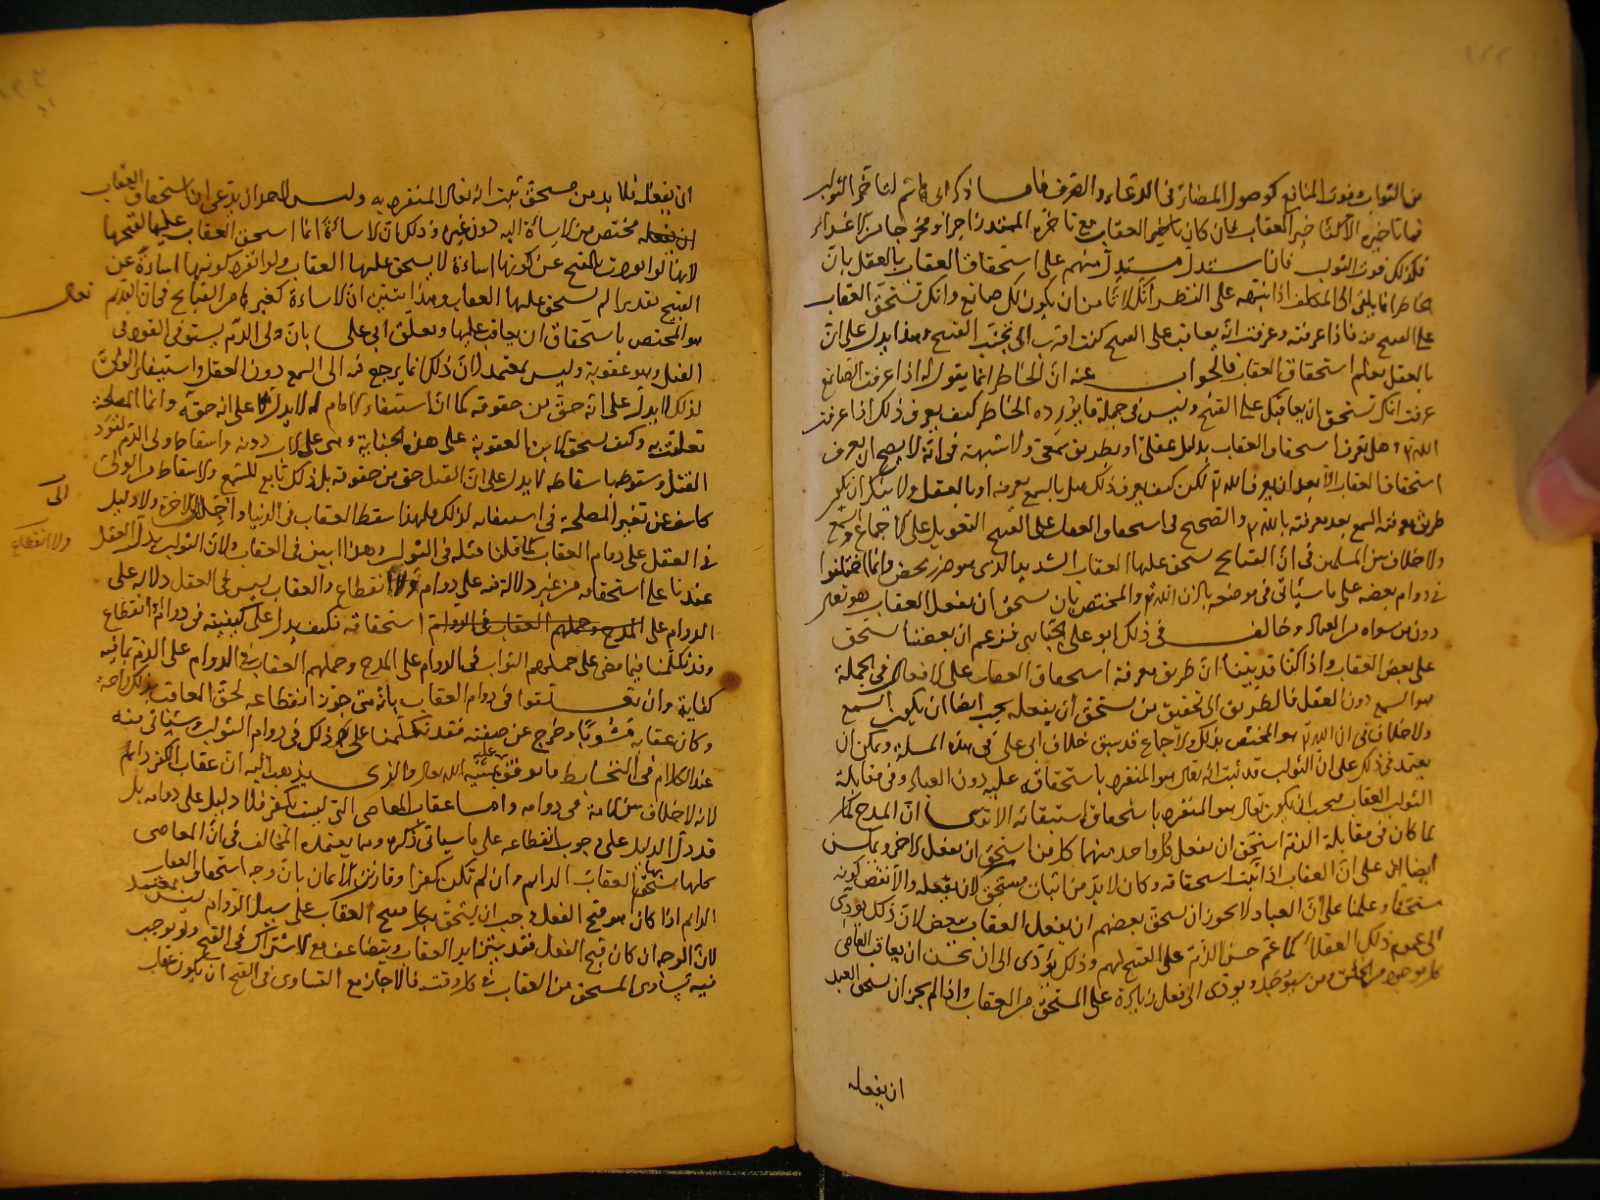 من الثواب وفوت المنافع كوصول المضار في الدعاء والصرف فاما ما ذكره ابي هاشم لنا خر الثواب
فلذلك فوت الثواب فان استدل مستدل منهم على استحقاق العقاب بالعقل بان
الخاطر انما يلقى الى المكلف اذا انتبه على النظر انك لا تأمن ان يكون لكل صانع وانك تستحق العقاب
على القبيح منه فاذا عرفته وعرفت انه يعاقب على القبيح كنت اقرب الى تجنب القبيح وهذا يدل على ان
بالعقل يعلم استحقاق العقاب فالجواب عنه ان الخاطر انما يقول له اذا عرفت الصانع
عرفت انك تستحق ان يعاقبك على القبيح وليس في جملة ما يورده الخاطر كيف يعرف ذلك اذا عرفت
الله تع وهل يعرف استحقاق العقاب بدليل عقلي او بطريق سمعي ولا شبهة في انه لا يصح ان يعرف
استحقاق العقاب الا بعد ان يعرف الله تع لكن كيف يعرف ذلك هل بالسمع يعرفه او بالعقل ولا ينكر ان يكون
طريق معرفته السمع بعد معرفته بالله تع والصحيح في استحقاق العقاب على القبيح التعويل على الاجماع والسمع
ولا خلاف بين المسلمين في ان القبائح يستحق عليها العقاب الشديد الذي هو ضرر محض وانما اختلفوا
في دوام بعضه على ما سيأتي في موضعه باذن الله تع والمختص بان يستحق ان يفعل العقاب هو تعالى
دون من سواه من العباد وخالف في ذلك ابو علي الجبائي فزعم ان بعضنا يستحق
على بعض العقاب واذا كنا قد بينا ان طريق معرفة استحقاق العقاب على الافعال في الجملة
هو السمع دون العقل فالطريق الى تحقيق من يستحق ان يفعله يجب ايضا ان يكون السمع
ولا خلاف في ان الله تع هو المختص بذلك والاجماع قد سبق خلاف ابي علي في هذه المسلة ويمكن ان
يعتمد في ذلك على ان الثواب قد ثبت انه تعالى هو المنفرد باستحقاقه عليه دون العباد وفي مقابلة
الثواب العقاب فيجب ان يكون تعالى هو المنفرد باستحقاق استيفائه الا ترى ان المدح لما
لما كان في مقابلة الذم استحق ان يفعل كل واحد منهما كل من استحق ان يفعل الاخر ويمكن
ايضا على ان العقاب اذا ثبت استحقاقه وكان لا بد من اثبات مستحق لان يفعله والا نقض كونه
مستحقا وعلمنا على ان العباد لا يجوز ان يستحق بعضهم ان يفعل العقاب ببعض لان ذلك يؤدي
الى عموم ذلك العقلاء كما عم حسن الذم على القبيح لهم وذلك يؤدي الى ان يحسن ان يعاقب العاصي
كل موجود من الخلق من سيوجد ويودي الى فعل زيادة على المستحق من العقاب واذا لم يجز ان يستحق العبد
ان يفعله
ان يفعله فلا بد من مستحق ثبت انه تعالى المنفرد به وليس لاحد ان يدعي ان استحقاق العقاب
ان يفعله مختص من الاساءة اليه دون غيره وذلك ان الاساءة انما استحق العقاب عليها لقبحها
لانها لو انفردت عن كونها اساءة لا يستحق عليها العقاب ولو انفرد كونها اساءة عن
القبح تقديرا لم يستحق عليها العقاب وهذا يبين ان الاساءة كغيرها من القبائح في ان القديم
تعالى
هو المختص باستحقاق ان يعاقب عليها وتعلق ابي علي بان ولي الدم يستوفي القود في
القتل وهو عقوبة وليس بمعتمد لان ذلك انما يرجع فيه الى السمع دون العقل واستيفاء الولي
لذلك لا يدل على انه حق من حقوقه كما ان استيفاء الامام له لا يدل على انه حقه وانما المصلحة
القتل وسقوطها باسقاطه لا يدل على ان القتل حق من حقوقه بل ذلك تابع للسمع والاسقاط من الولي
الى
كاشف عن تغير المصلحة في استيفائه لذلك ولهذا سقط العقاب في الدنيا الاخرة ولا دليل
في العقل على دوام العقاب كما قلنا مثله في الثواب وهذا ابين في العقاب ولان الثواب يدل العقل
ولا انقطاع
عندنا على استحقاقه من غير دلالة منه على دوام ولا انقطاع والعقاب ليس في العقل دلالة على
الدوام على المدح وحملهم العقاب في الدوام استحقاقه فكيف يدل على كيفيته في دوام او انقطاع
وقد تكلمنا فيما مضى على حملهم الثواب في الدوام على المدح وحملهم العقاب في الدوام على الذم بما فيه
كفاية وان تعلقوا في دوام العقاب بانه متى جوز انقطاعه لحق المعاقب بذلك راحة
وكان عقابه مشوبا وخرج عن صفته فقد تكلمنا على ذلك في دوام الثواب وسيأتي منه
عند الكلام في التحابط ما نوفق بمشية الله تعالى والذي يذهب اليه ان عقاب الكفر دائم
لانه لا خلاف بين الامة في دوامه واما عقاب المعاصي التي ليست بكفر فلا دليل على دوامه بل
قد دل الدليل على وجوب انقطاعه على ما سيأتي ذكره ومما يعتمده المخالف في ان المعاصي
كلها يستحق بها العقاب الدايم وان لم تكن كفرا وقارنت الايمان بان وجه استحقاق العقاب
الدايم اذا كان هو قبح الفعل وجب ان يستحق بكل قبيح العقاب على سبيل الدوام ليس بمعتمد
لان الوجه ان كان قبح الفعل فقد يتزايد العقاب ويتضاعف مع الاشتراك في القبح ولو توجب
فيه تساوي المستحق من العقاب في كل وقت فالا جاز مع التساوي في القبح ان يكون عقاب